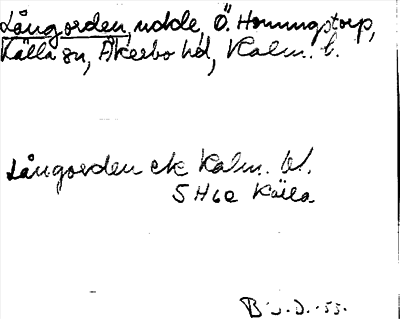 Långorden, udde, Ö. Horningstorp,
Källa sn, Åkerbo hd, Kalm. l.
Långorden ek Kalm. bl.
5 H 6e Källa
B : D. -55.